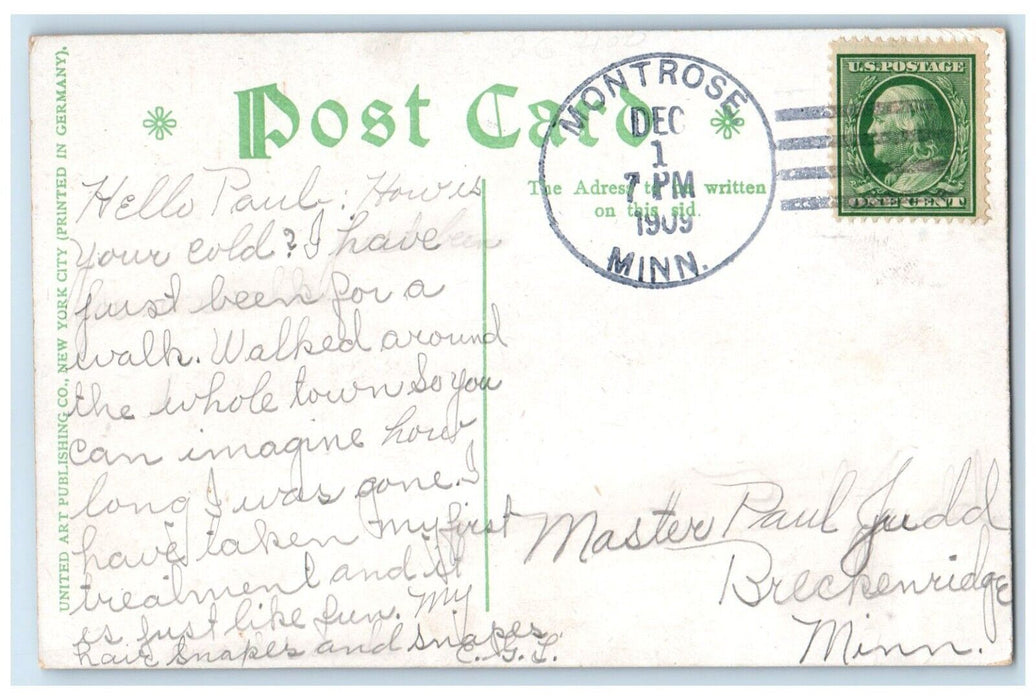 Post Card
UNITED ART PUBLISHING CO., NEW YORK CITY (PRINTED IN GERMANY).
MONTROSE
DEC
1
7 PM
1909
MINN.
U.S. POSTAGE
ONE CENT
The Adress to be written
on this sid.
Hello Paul: How is
your cold? I have
just been for a
walk. Walked around
the whole town so you
can imagine how
long I was gone. I
have taken my first
treatment and it
is just like fun. My
hair snapes and snapes
C. G. L.
Master Paul Judd
Breckenridge
Minn.